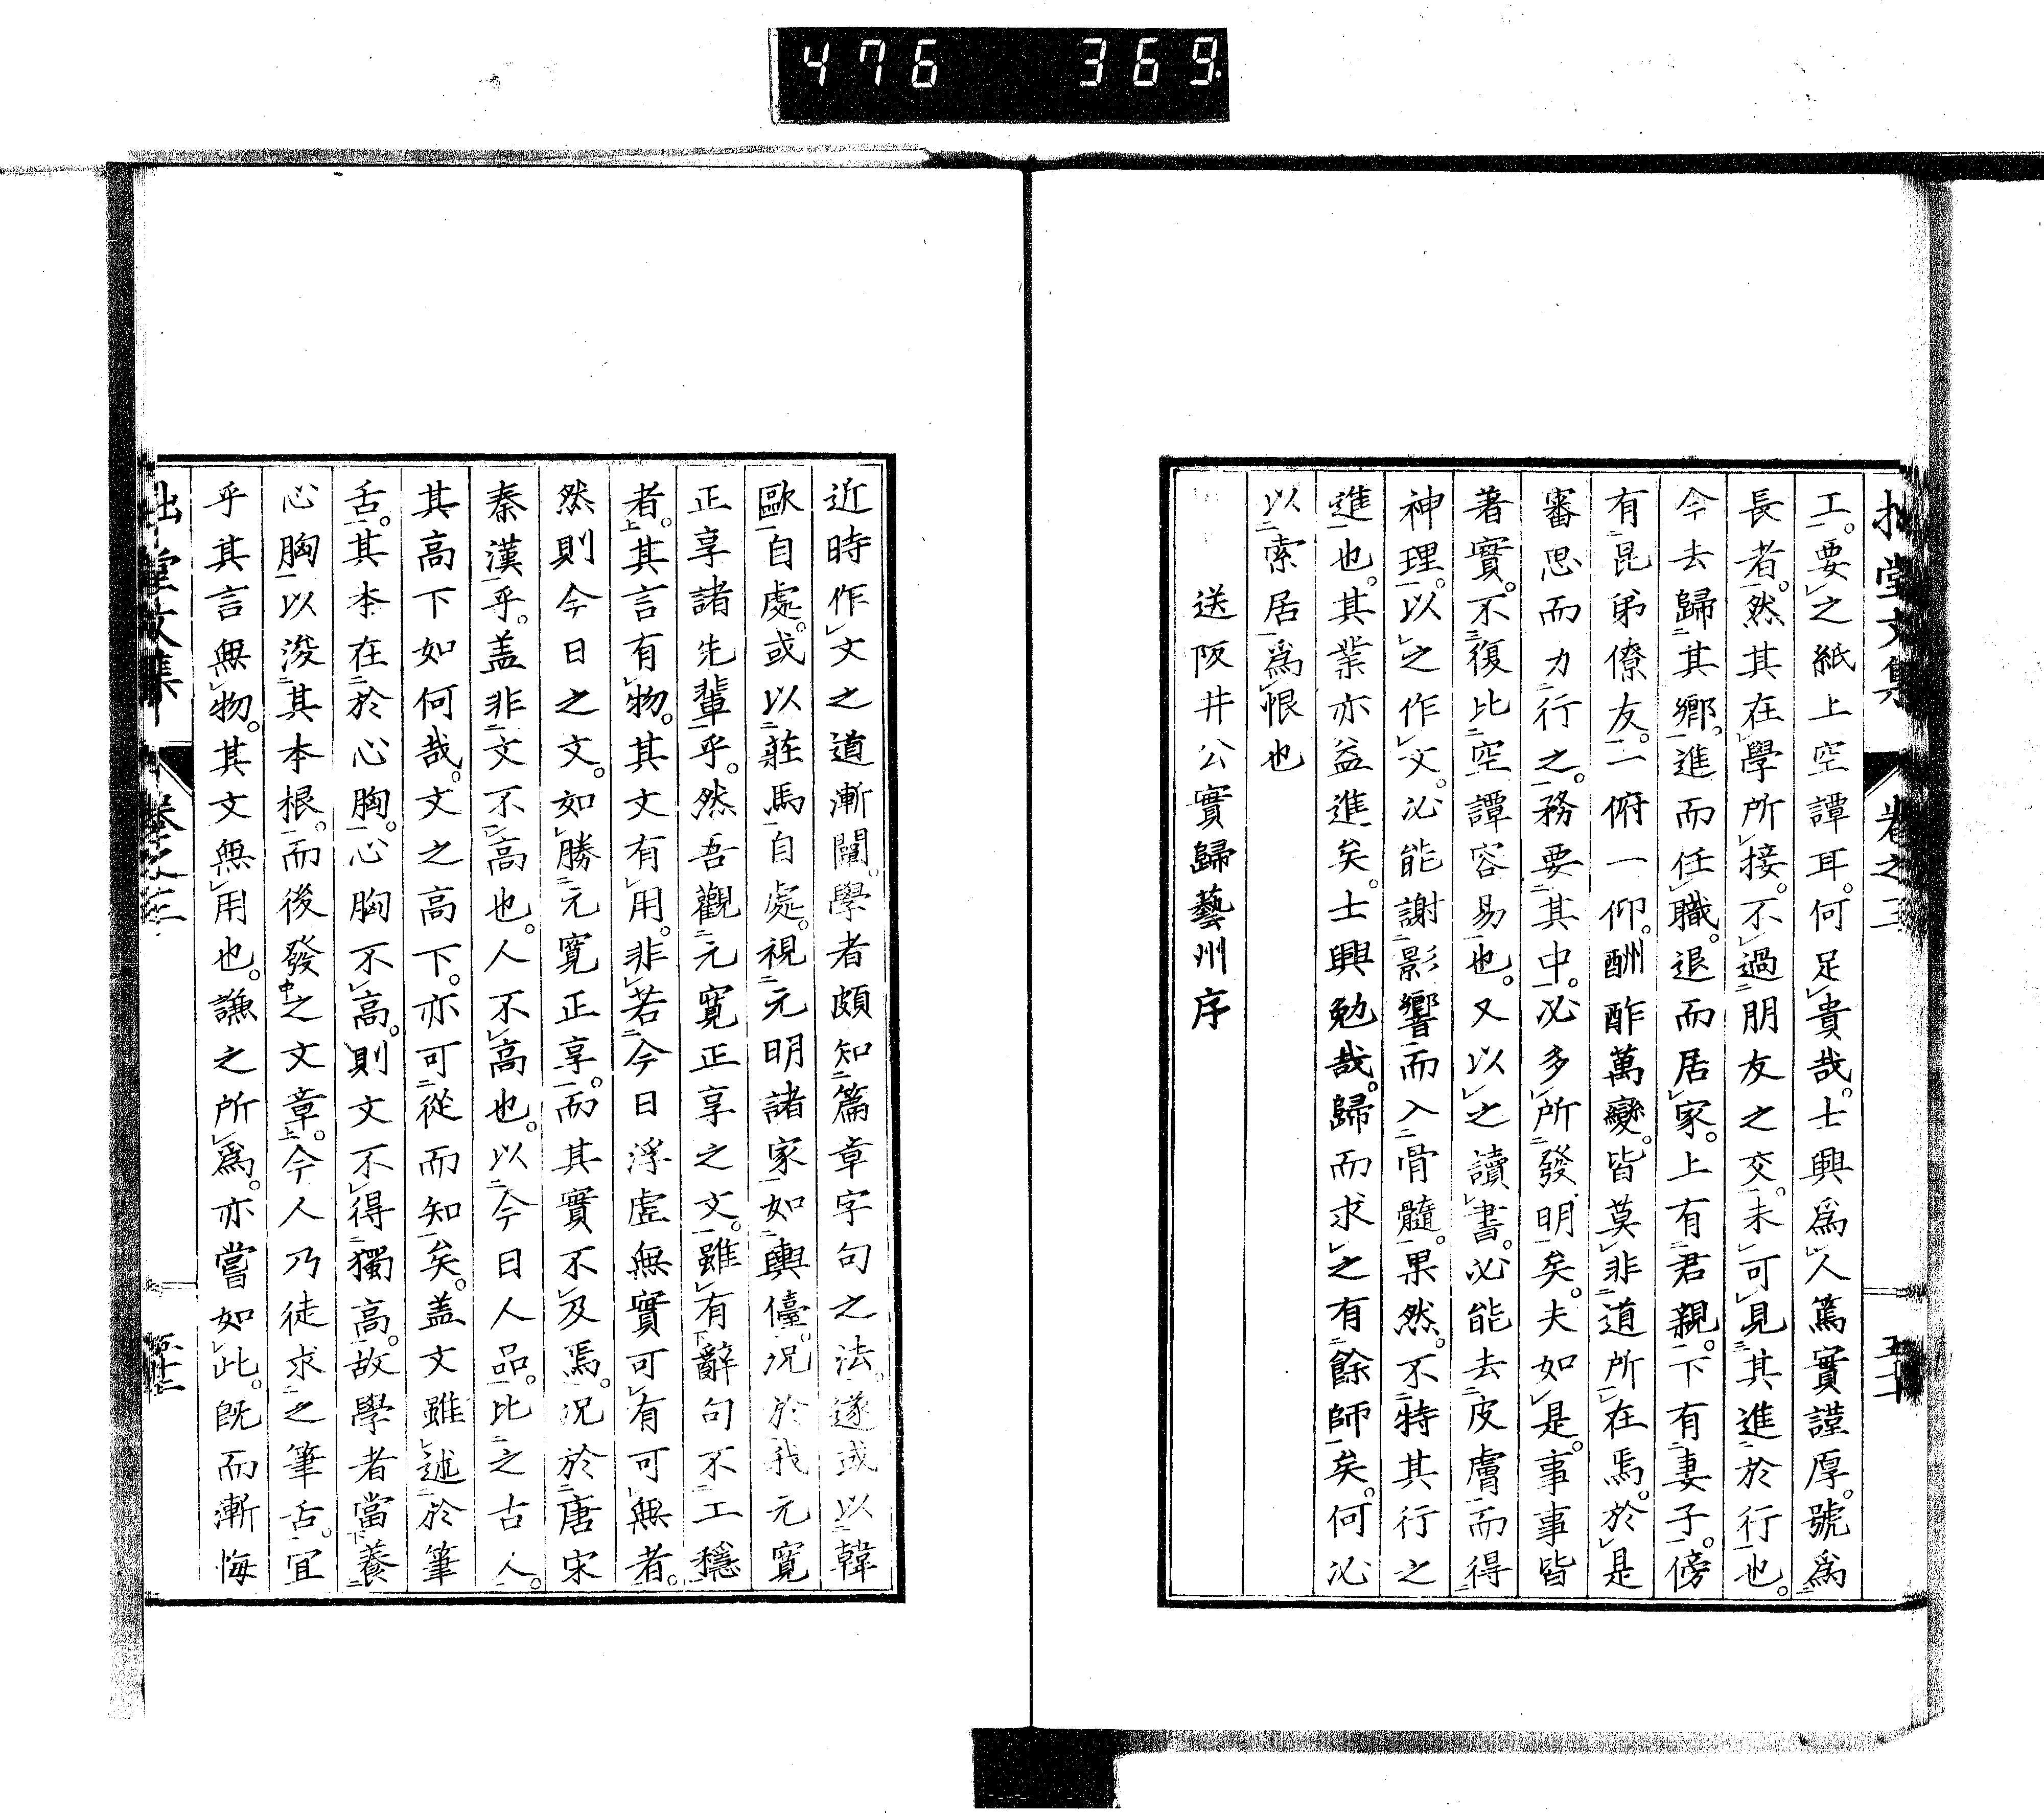 476 369
拙堂文集 卷之三
工。要之紙上空譚耳。何足貴哉。士興爲人篤實謹厚。號爲
長者。然其在學所接。不過朋友之交。未可見其進於行也。
今去歸其鄉。進而任職。退而居家。上有君親。下有妻子。傍
有昆弟僚友。一俯一仰。酬酢萬變。皆莫非道所在焉。於是
審思而力行之。務要其中。必多所發明矣。夫如是。事事皆
著實。不復比空譚容易也。又以之讀書。必能去皮膚而得
神理。以之作文。必能謝影響而入骨髓。果然。不特其行之
進也。其業亦益進矣。士興勉哉。歸而求之有餘師矣。何必
以索居爲恨也
送阪井公實歸藝州序
近時作文之道漸闢。學者頗知篇章字句之法。遂或以韓
歐自處。或以莊馬自處。視元明諸家如輿儓。況於我元寬
正享諸先輩乎。然吾觀元寬正享之文。雖有辭句不工穩
者。其言有物。其文有用。非若今日浮虛無實可有可無者。
然則今日之文。如勝元寬正享。而其實不及焉。況於唐宋
秦漢乎。盖非文不高也。人不高也。以今日人品。比之古人。
其高下如何哉。文之高下。亦可從而知矣。盖文雖述於筆
舌。其本在於心胸。心胸不高。則文不得獨高。故學者當養
心胸以浚其本根。而後發之文章。今人乃徒求之筆舌。宜
乎其言無物。其文無用也。謙之所爲。亦嘗如此。既而漸悔
拙堂文集 卷之三